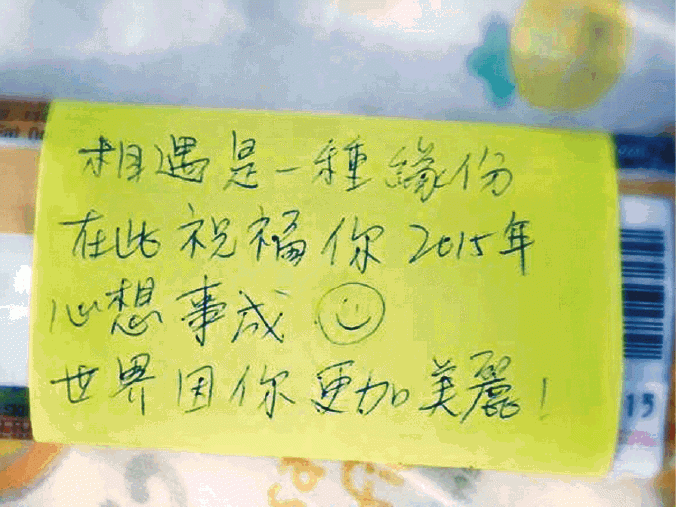 相遇是一種緣份
在此祝福你2015年
心想事成
世界因你更加美麗!
15